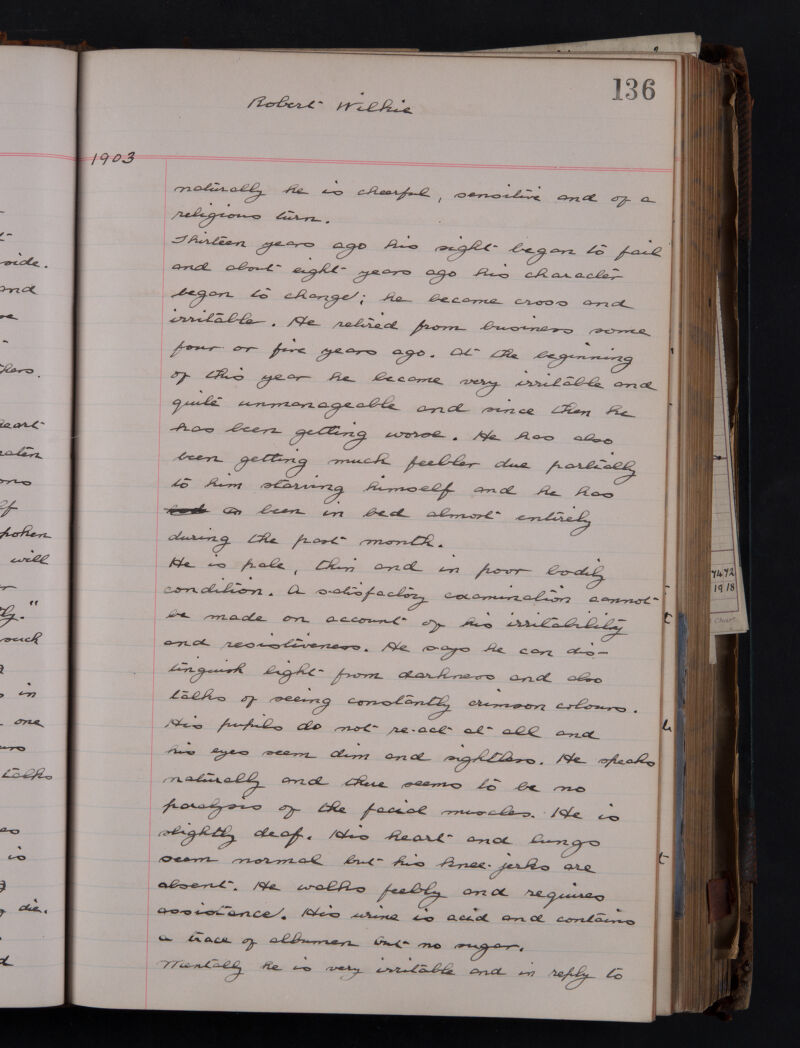 136
Robert Wilkie
1903
naturally he is cheerful, sensitive and of a
religious turn.
Thirteen years ago his sight began to fail
and about eight years ago his character
began to change; he became cross and
irritable. He retired from business some
four or five years ago. At the beginning
of this year he became very irritable and
quite unmanageable and since then he
has been getting worse. He has also
been getting much feebler due partially
to him starving himself and he has
been in bed almost entirely
during the past month.
He is pale, thin and in poor bodily
condition. A satisfactory examination cannot
be made on account of his irritability
and resistiveness. He says he can dis-
tinguish light from darkness and also
talks of seeing constantly crimson colours.
His pupils do not re-act at all and
his eyes seem dim and sightless. He speaks
naturally and there seems to be no
paralysis of the facial muscles. He is
slightly deaf. His heart and lungs
seem normal but his knee-jerks are
absent. He walks feebly and requires
assistance. His urine is acid and contains
a trace of albumen but no sugar.
Mentally he is very irritable and in reply to
side.
and
spoken
will
such
in
one
talks
is
die.
7472
1918
Chart